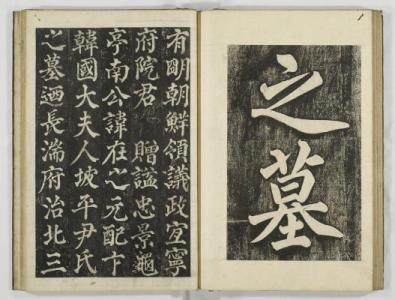 之墓
有明朝鮮領議政宜寧
府院君 贈諡忠景龜
亭南公諱在之元配卞
韓國大夫人坡平尹氏
之墓迺長湍府治北三